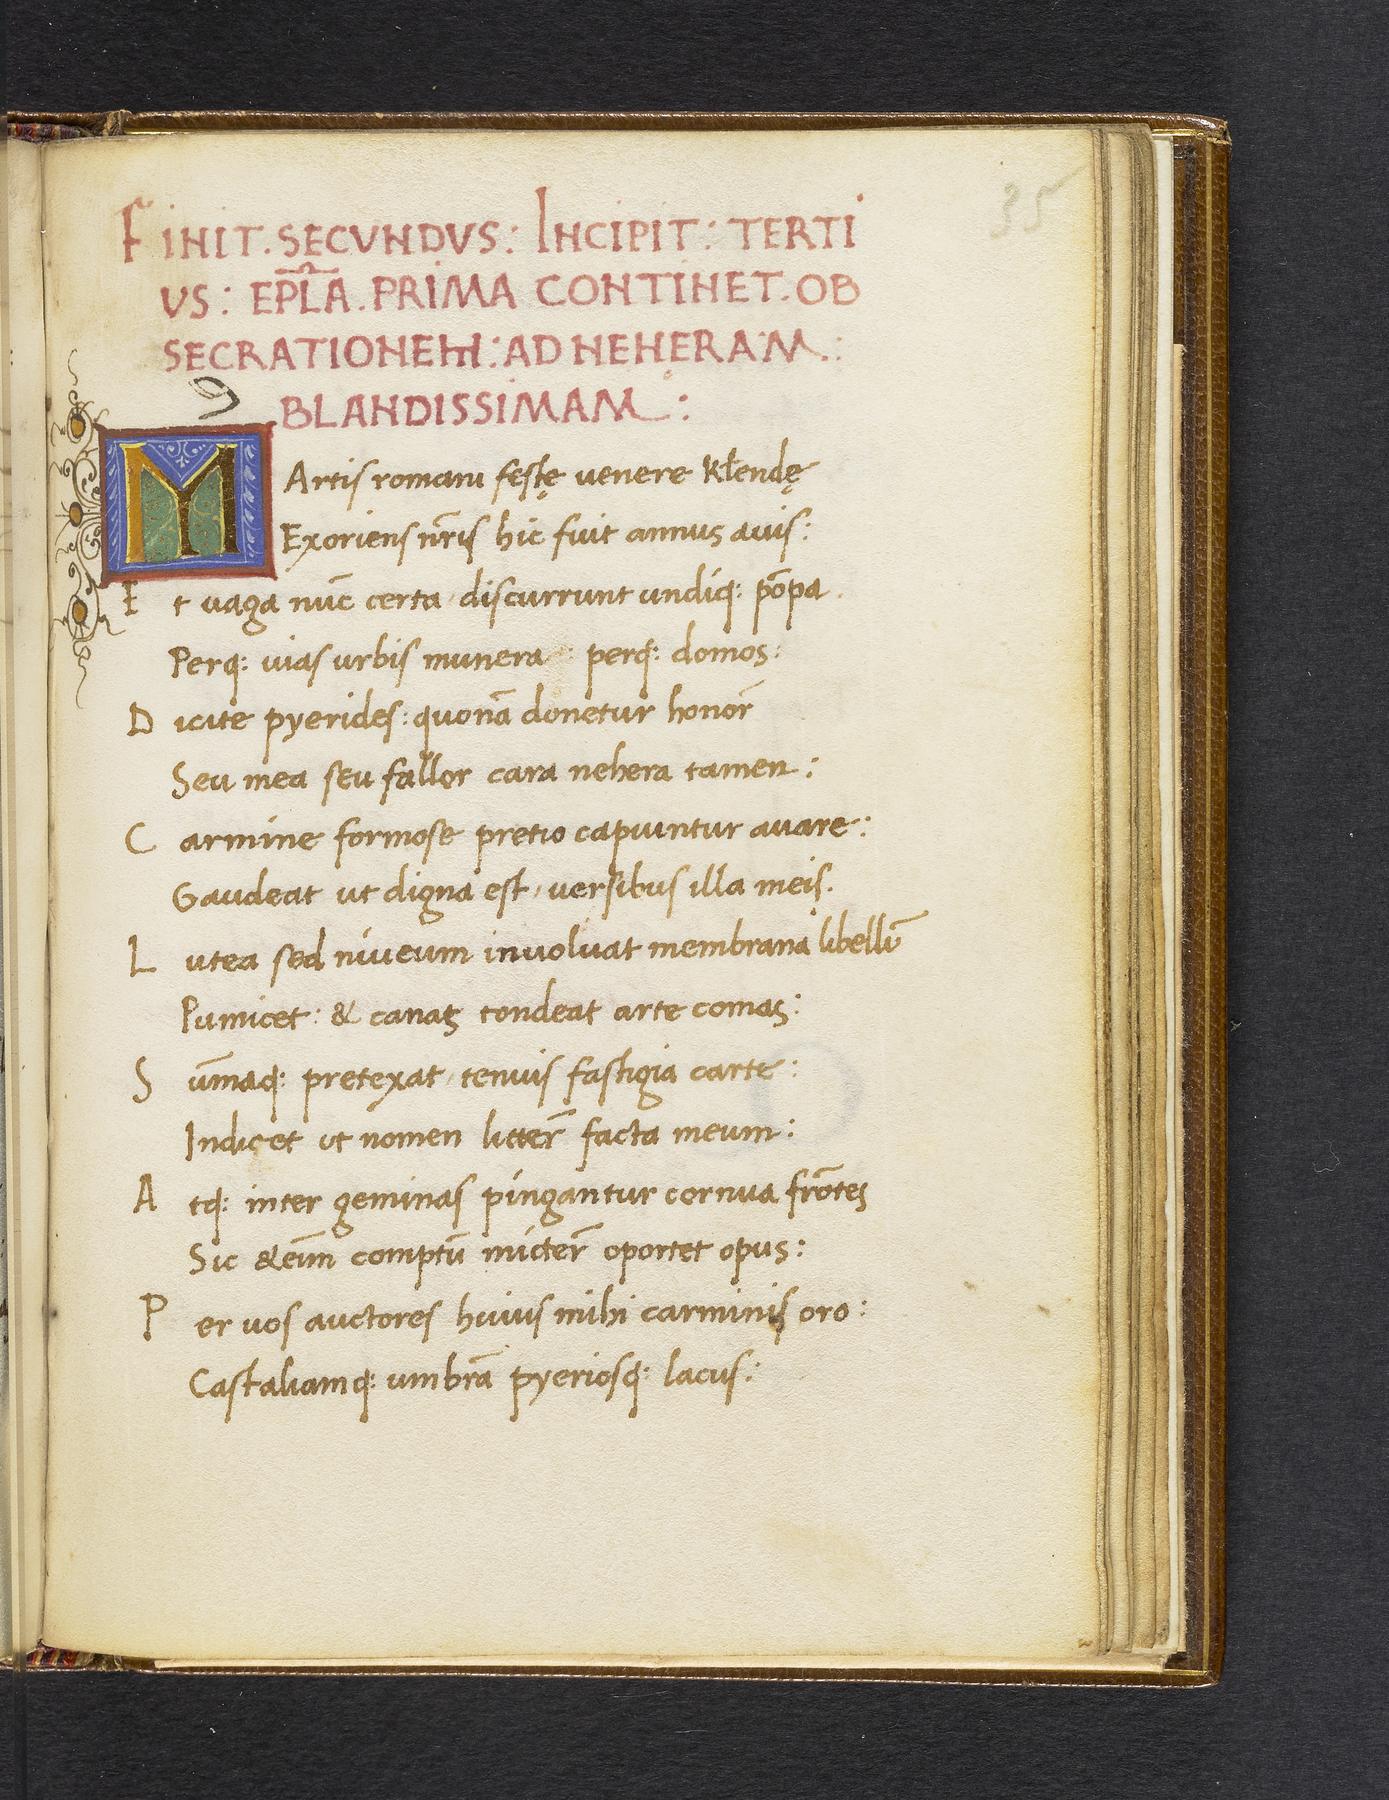 35
FINIT. SECVNDVS: INCIPIT: TERTI
VS: EPL̅A. PRIMA CONTINET. OB
SECRATIONEM: AD NEHERAM.:
BLANDISSIMAM:
MArtis romani festę uenere kłendę
Exoriens nr̅is hic fuit annus auis:
Et uaga nūc certa discurrunt undiq: pōpa.
Perq: uias urbis munera: perq: domos:
Dicite pyerides: quonā donetur honor̄
Seu mea seu fallor cara nehera tamen:
Carmine formose pretio capiuntur auare:
Gaudeat ut digna est, uersibus illa meis.
Lutea sed niueum inuoluat membrana libellū
Pumicet: & canas tondeat arte comas:
Sūmaq: pretexat, tenuis fastigia carte:
Indicet ut nomen litter̄ facta meum:
Atq: inter geminas pingantur cornua frōtes
Sic &eīm comptū micter̄ oportet opus:
Per uos auctores huius mihi carminis oro:
Castaliamq: umbrā pyeriosq: lacus: